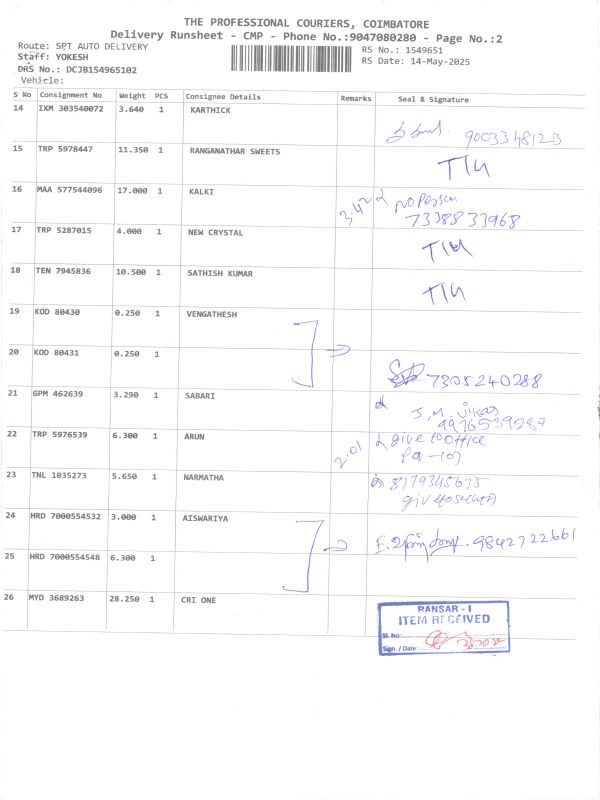 THE PROFESSIONAL COURIERS, COIMBATORE
Delivery Runsheet - CMP - Phone No.:9047080280 - Page No.:2
Route: SPT AUTO DELIVERY
Staff: YOKESH
DRS No.: DCJB154965102
Vehicle:
RS No.: 1549651
RS Date: 14-May-2025
S No Consignment No Weight PCS Consignee Details Remarks Seal & Signature
14 IXM 303540072 3.640 1 KARTHICK
9003348123
15 TRP 5978447 11.350 1 RANGANATHAR SWEETS
16 MAA 577544096 17.000 1 KALKI
no person
7338833968
17 TRP 5287015 4.000 1 NEW CRYSTAL
18 TEN 7945836 10.500 1 SATHISH KUMAR
19 KOD 80430 0.250 1 VENGATHESH
20 KOD 80431 0.250 1
7305240288
21 GPM 462639 3.290 1 SABARI
J.M. Vikas
9976539287
22 TRP 5976539 6.300 1 ARUN
2.01 give to office
23 TNL 1035273 5.650 1 NARMATHA
8179345675
24 HRD 7000554532 3.000 1 AISWARIYA
9842722661
25 HRD 7000554548 6.300 1
26 MYD 3689263 28.250 1 CRI ONE
RANSAR - I
ITEM RECEIVED
Sl. No:
Sign. / Date